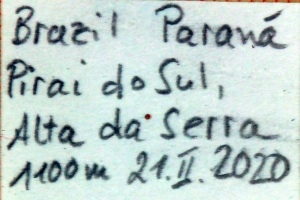 Brazil Paraná
Pirai do Sul,
Alta da Serra
1100m 21.II.2020